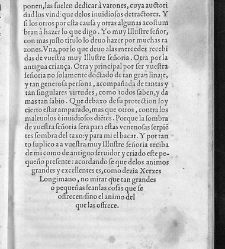 ponen, las suelen dedicar à varones, cuya auctori
dad los vindique delos inuidiosos detractores. Y
si los otros por esta causa y otras algunas acostum
bran à hazer lo que digo. Yo muy Illustre señor,
con mas justo titulo lo deuo hazer por muchas ra
zones. Vna, por lo que deuo alas mercedes recebi
das de vuestra muy Illustre Señoria. Otra por la
antigua criança. Otra y principal por ser vuestra
señoria no solamente dotado de tan gran linaje,
y tan generosa persona, acompañada de tantas y
tan singulares virtudes, como todos saben, y da
mas tan sabio. Que debaxo de su protection soy
cierto estar amparado, mas que otros, contra los
maleuolos è inuidiosos dichos. Porque la sombra
de vuestra señoria sera para estas venenosas serpiẽ
tes sombra del taray y para mi el hinojo. Y por tan
to suplico a a vuestra muy Illustre Señoria reciba
de mi como de antiguo seruidor y criado este pe
queño presente: acordando se que delos animos
grandes y excellentes es, como dezia Xerxes
Longimano, no mirar que tan grandes
o pequeñas sean las cosas que se
offrecen sino el animo del
que las offrece.